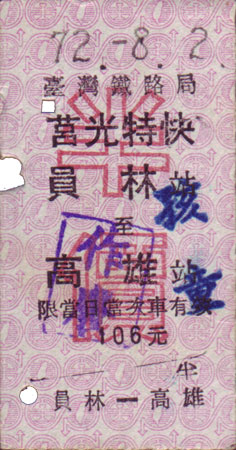 72.-8.2.
臺灣鐵路局
莒光特快
員林站
至
高雄站
限當日當次車有效
106元
半
員林一高雄
半價
孩童
作廢